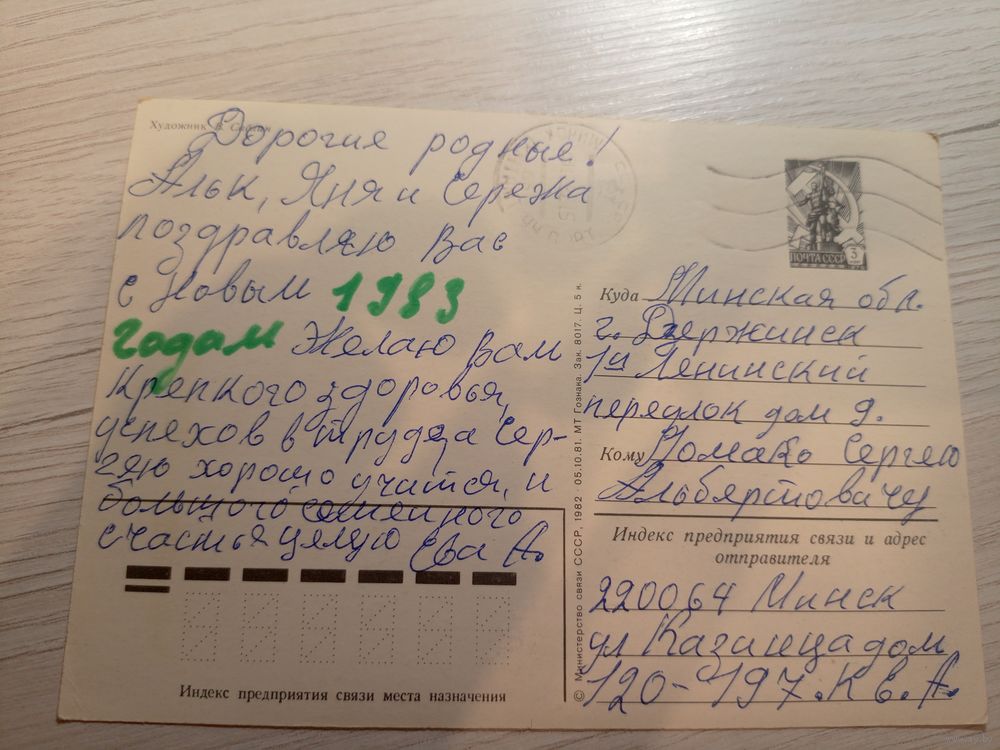 Художник В.
Дорогия родные!
Альк, Яня и Сережа
поздравляю Вас
с Новым 1983
годам Желаю Вам
крепкого здоровья,
успехов в труде, а Сер-
гею хорошо учится, и
большого семейного
счастья целую Ева А.
Индекс предприятия связи места назначения
© Министерство связи СССР, 1982 · 05.10.81. МТ Гознака. Зак. 8017. Ц. 5 к.
ПОЧТА СССР 3
Куда Минская обл.
г. Дзержинск
1й Ленинский
переулок дом 9.
Кому Сергею
Альбертовичу
Индекс предприятия связи и адрес
отправителя
220064 Минск
ул Казинца дом
120-197. К в. А.